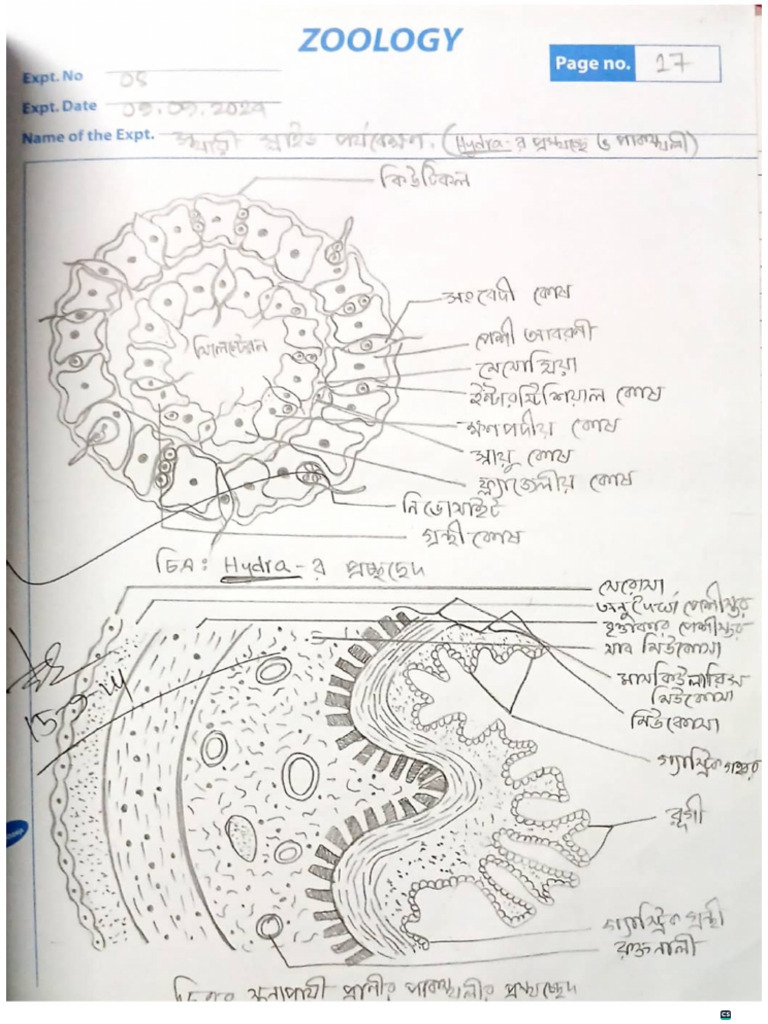 ZOOLOGY
Expt. No 05
Page no. 17
Expt. Date 09.09.2024
Name of the Expt. স্থায়ী স্লাইড পর্যবেক্ষণ. (Hydra-র প্রস্থচ্ছেদ ও পাকস্থলী)
কিউটিকল
সংবেদী কোষ
পেশী আবরণী
মেসোগ্লিয়া
ইন্টারস্টিশিয়াল কোষ
ক্ষণপদীয় কোষ
স্নায়ু কোষ
ফ্ল্যাজেলীয় কোষ
নিডোসাইট
গ্রন্থী কোষ
সিলেন্টেরন
চিত্র: Hydra-র প্রস্থচ্ছেদ
সেরোসা
অনুদৈর্ঘ্য পেশীস্তর
বৃত্তাকার পেশীস্তর
সাব মিউকোসা
মাসকিউলারিস
মিউকোসা
মিউকোসা
গ্যাস্ট্রিক গহ্বর
রুগী
গ্যাস্ট্রিক গ্রন্থী
রক্তনালী
15-9-24
চিত্র: স্তন্যপায়ী প্রাণীর পাকস্থলীর প্রস্থচ্ছেদ
CS